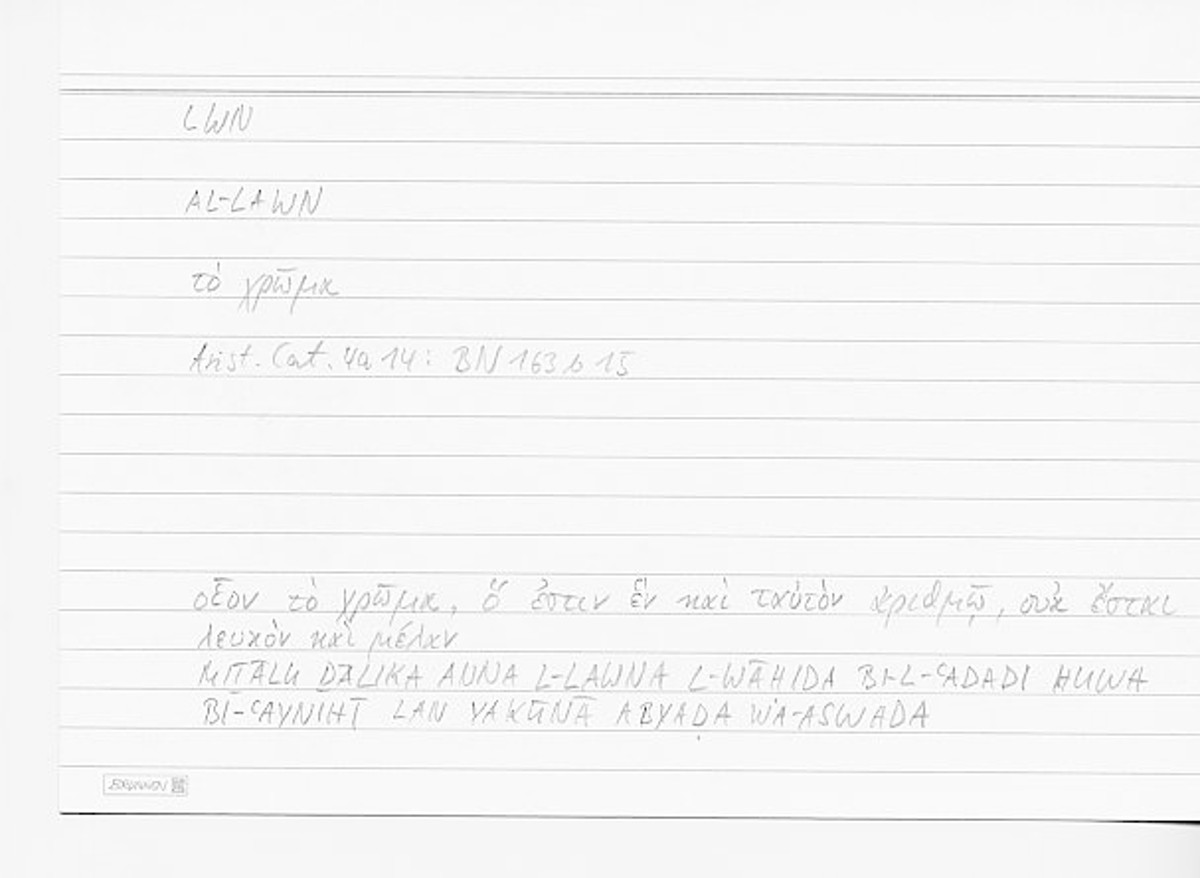 LWN
AL-LAWN
τὸ χρῶμα
Arist. Cat. 4a14: BN 163b15
οἷον τὸ χρῶμα, ὅ ἐστιν ἓν καὶ ταὐτὸν ἀριθμῷ, οὐκ ἔσται
λευκὸν καὶ μέλαν
MIṮĀLU ḎĀLIKA ANNA L-LAWNA L-WĀḤIDA BI-L-ʿADADI HUWA
BI-ʿAYNIHĪ LAN YAKŪNĀ ABYAḌA WA-ASWADA